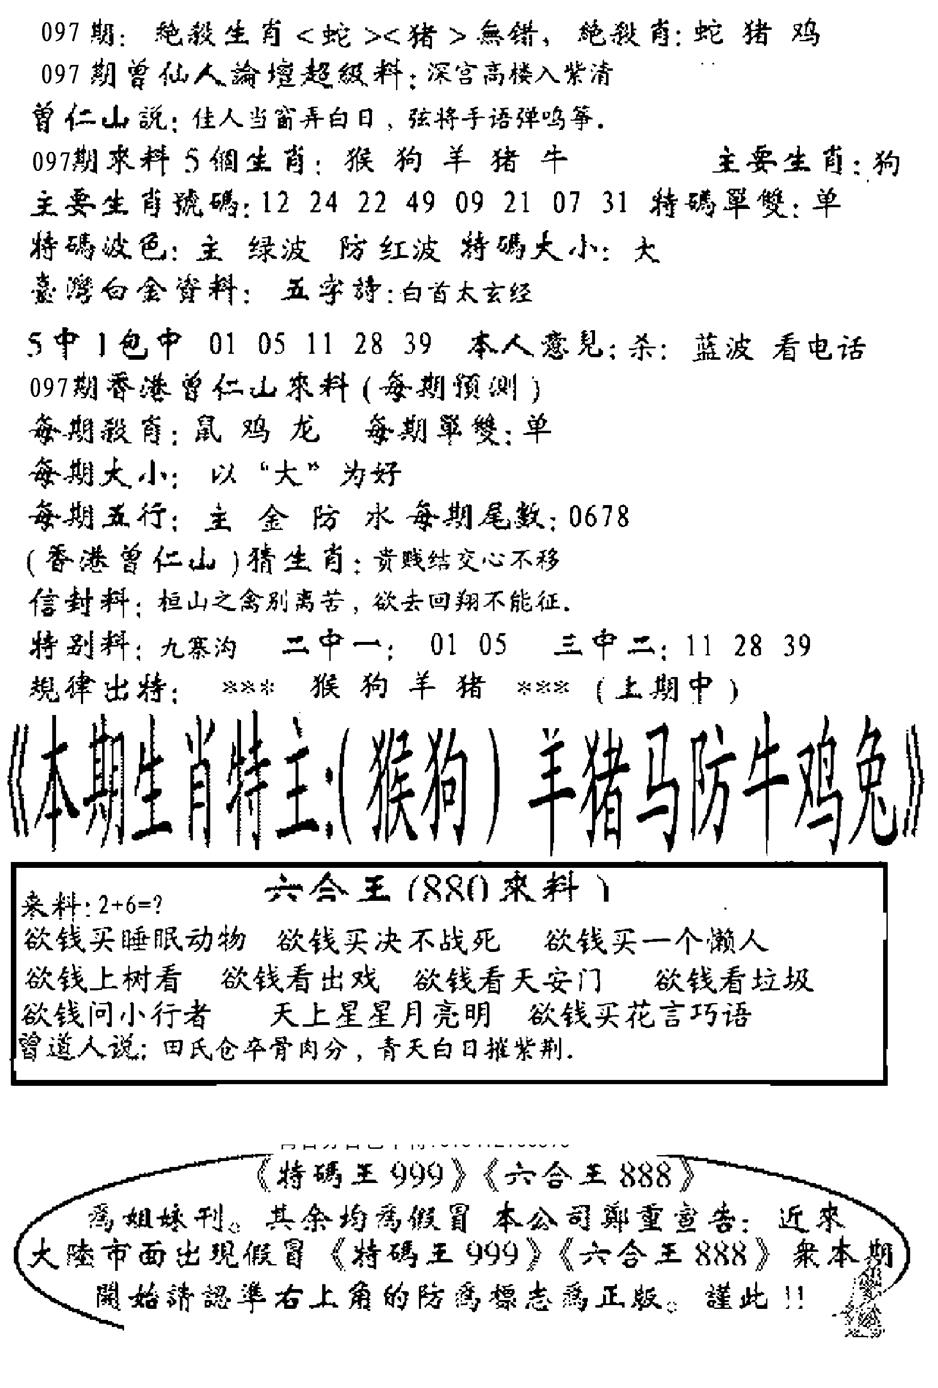 097期: 絶殺生肖<蛇><猪>無错, 絶殺肖:蛇 猪 鸡
097期曾仙人論壇超級料:深宫高楼入紫清
曾仁山説: 佳人当窗弄白日, 弦将手语弹鸣筝.
097期來料5個生肖: 猴 狗 羊 猪 牛 主要生肖:狗
主要生肖號碼:12 24 22 49 09 21 07 31 特碼單雙:单
特碼波色: 主 绿波 防红波 特碼大小: 大
臺灣白金資料: 五字詩:白首太玄经
5中1包中 01 05 11 28 39 本人意見:杀: 蓝波 看电话
097期香港曾仁山來料(每期預測)
每期殺肖:鼠 鸡 龙 每期單雙:单
每期大小: 以“大”为好
每期五行: 主 金 防 水 每期尾数:0678
(香港曾仁山)猜生肖:贵贱结交心不移
信封料: 桓山之禽别离苦, 欲去回翔不能征.
特别料: 九寨沟 二中一: 01 05 三中二:11 28 39
規律出特: *** 猴 狗 羊 猪 *** (上期中)
《本期生肖特主:(猴狗)羊猪马防牛鸡兔》
六合王(880來料)
来料:2+6=?
欲钱买睡眠动物 欲钱买决不战死 欲钱买一个懒人
欲钱上树看 欲钱看出戏 欲钱看天安门 欲钱看垃圾
欲钱问小行者 天上星星月亮明 欲钱买花言巧语
曾道人说: 田氏仓卒骨肉分, 青天白日摧紫荆.
《特碼王999》《六合王888》
為姐妹刊。其余均為假冒 本公司鄭重宣告: 近來
大陸市面出現假冒《特碼王999》《六合王888》衆本期
開始請認準右上角的防為標志為正版。 謹此!!